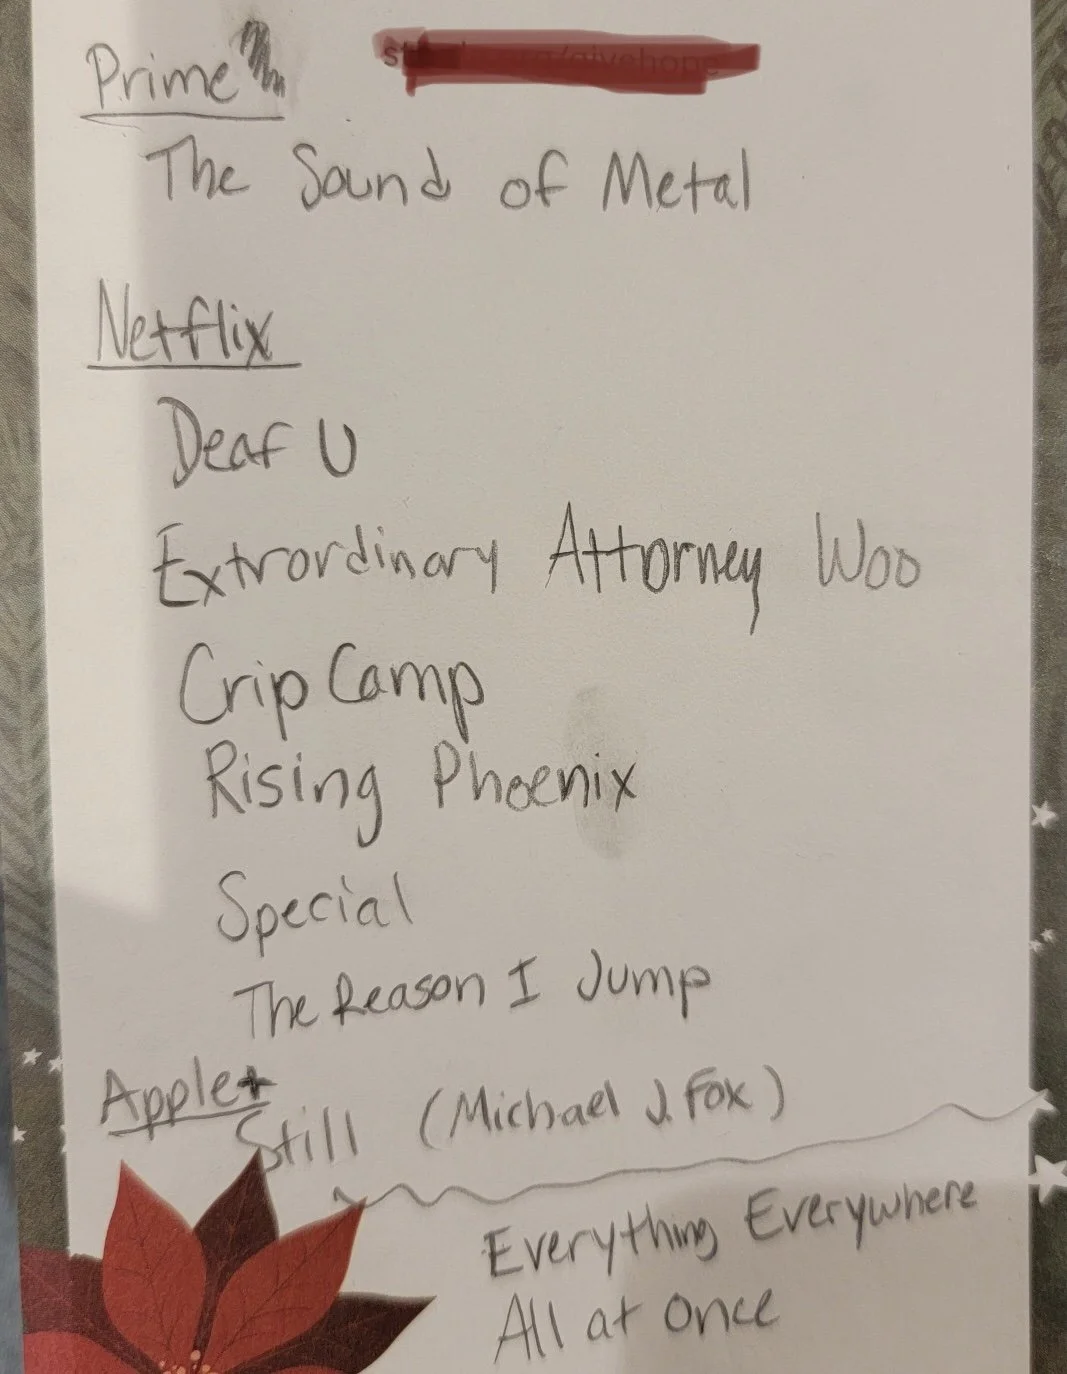 Prime
The Sound of Metal
Netflix
Deaf U
Extrordinary Attorney Woo
Crip Camp
Rising Phoenix
Special
The Reason I Jump
Apple+
Still (Michael J. Fox)
Everything Everywhere
All at once